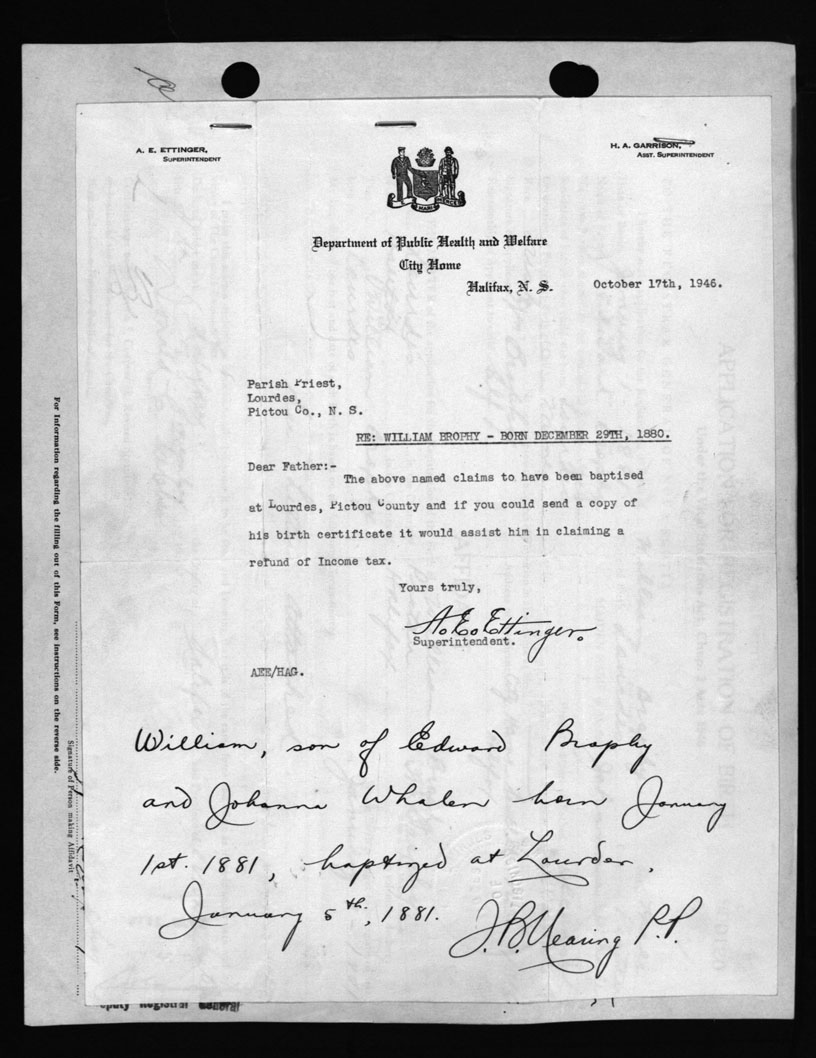 A. E. ETTINGER,
SUPERINTENDENT
H. A. GARRISON,
ASST. SUPERINTENDENT
Department of Public Health and Welfare
City Home
Halifax, N. S.
October 17th, 1946.
Parish Priest,
Lourdes,
Pictou Co., N. S.
RE: WILLIAM BROPHY - BORN DECEMBER 29TH, 1880.
Dear Father:-
The above named claims to have been baptised
at Lourdes, Pictou County and if you could send a copy of
his birth certificate it would assist him in claiming a
refund of Income tax.
Yours truly,
A. E. Ettinger.
Superintendent.
AEE/HAG.
William, son of Edward Brophy
and Johanna Whalen born January
1st. 1881, baptized at Lourdes,
January 5th, 1881.
J. B. P.P.
For Information regarding the filling out of this Form, see instructions on the reverse side.
Signature of Person making Affidavit
eputy Registrar General